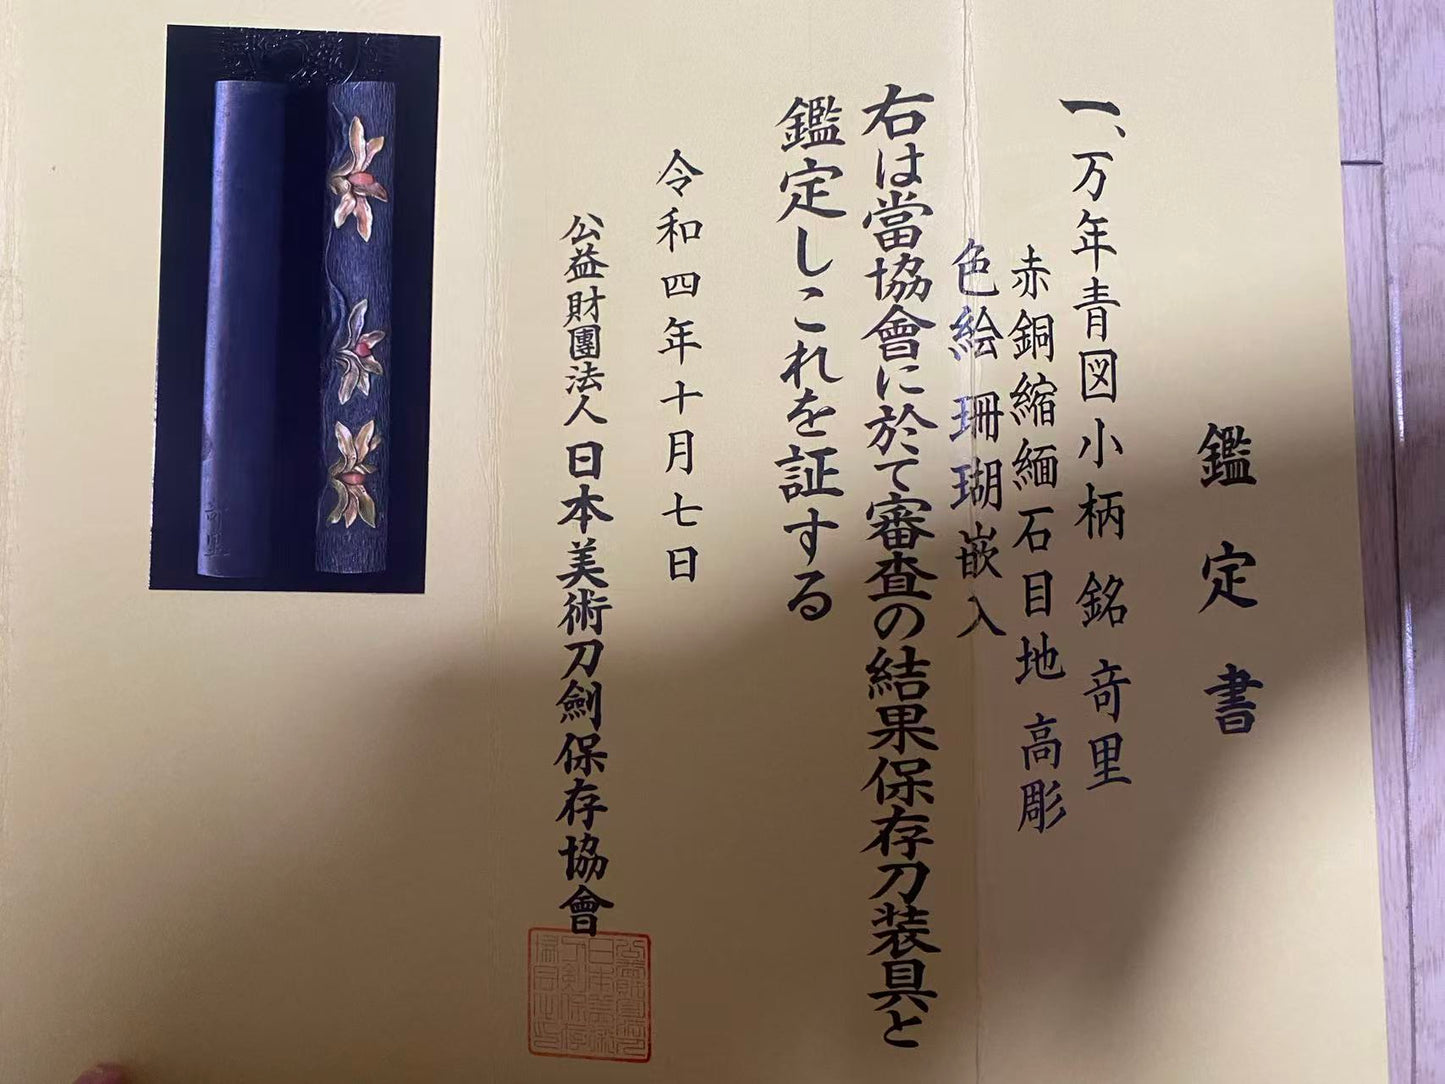 鑑定書
一、万年青図小柄 銘 奇里
赤銅縮緬石目地 高彫
色絵 珊瑚嵌入
右は當協會に於て審査の結果保存刀装具と
鑑定しこれを証する
令和四年十月七日
公益財團法人 日本美術刀劍保存協會